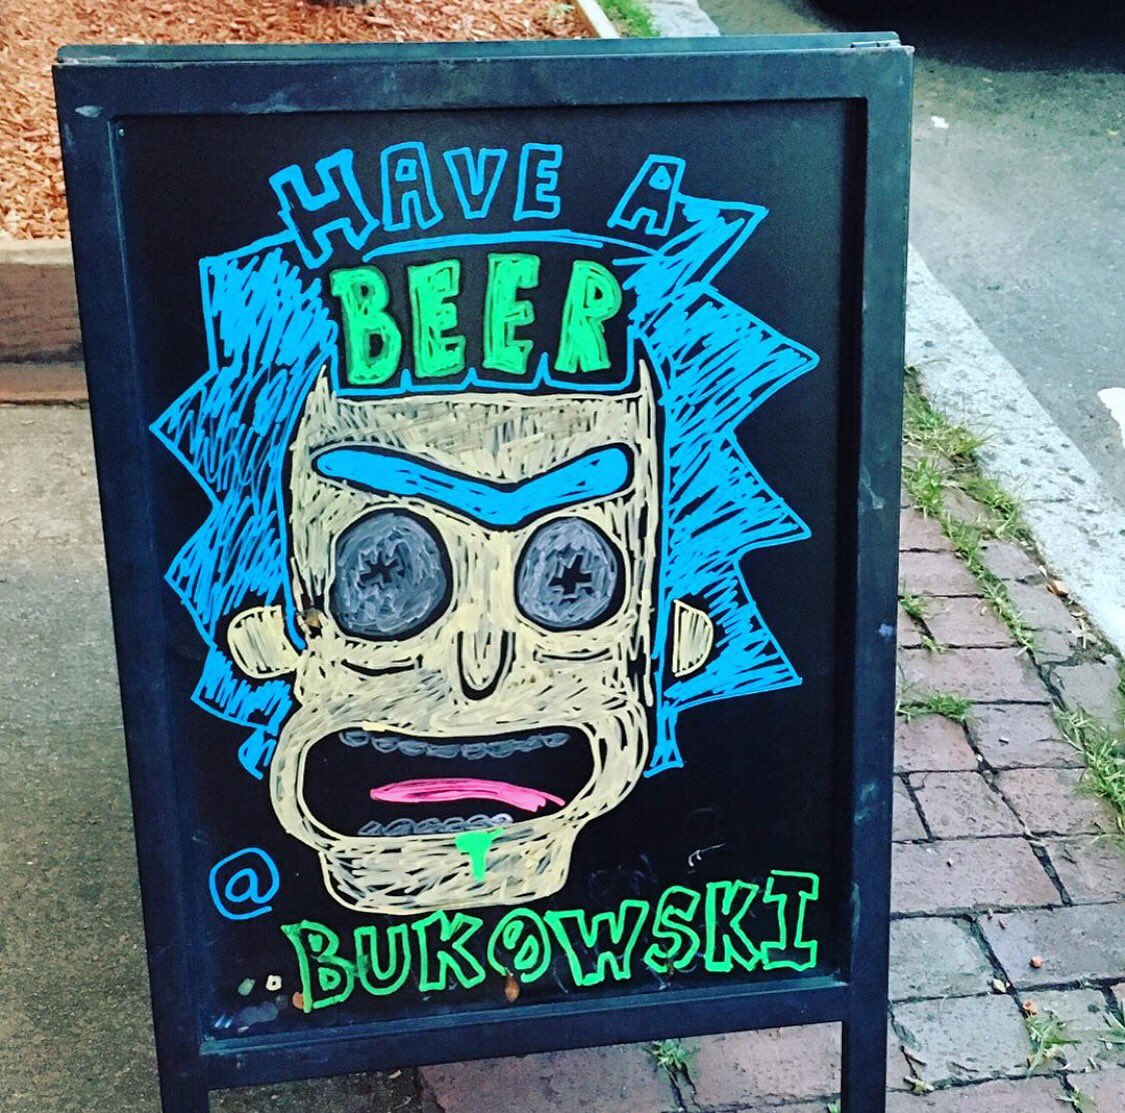 HAVE A
BEER
@
BUKOWSKI